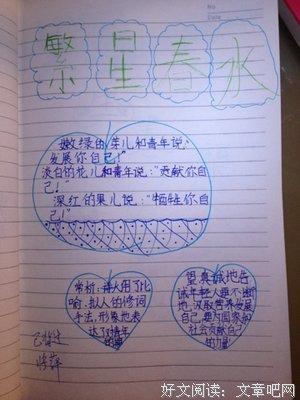 No.
Date
繁星春水
嫩绿的芽儿和青年说:
发展你自己!"
淡白的花儿和青年说:"贡献你自
己!"
深红的果儿说:"牺牲你自
己!"
赏析:诗人用了比
喻、拟人的修辞
手法,形象地表
达了对青年
望真诚地告
诫年轻人要不断
地汲取营养发展
自己,要为国家和
社会贡献自己
的力量!
好文阅读:文章吧网